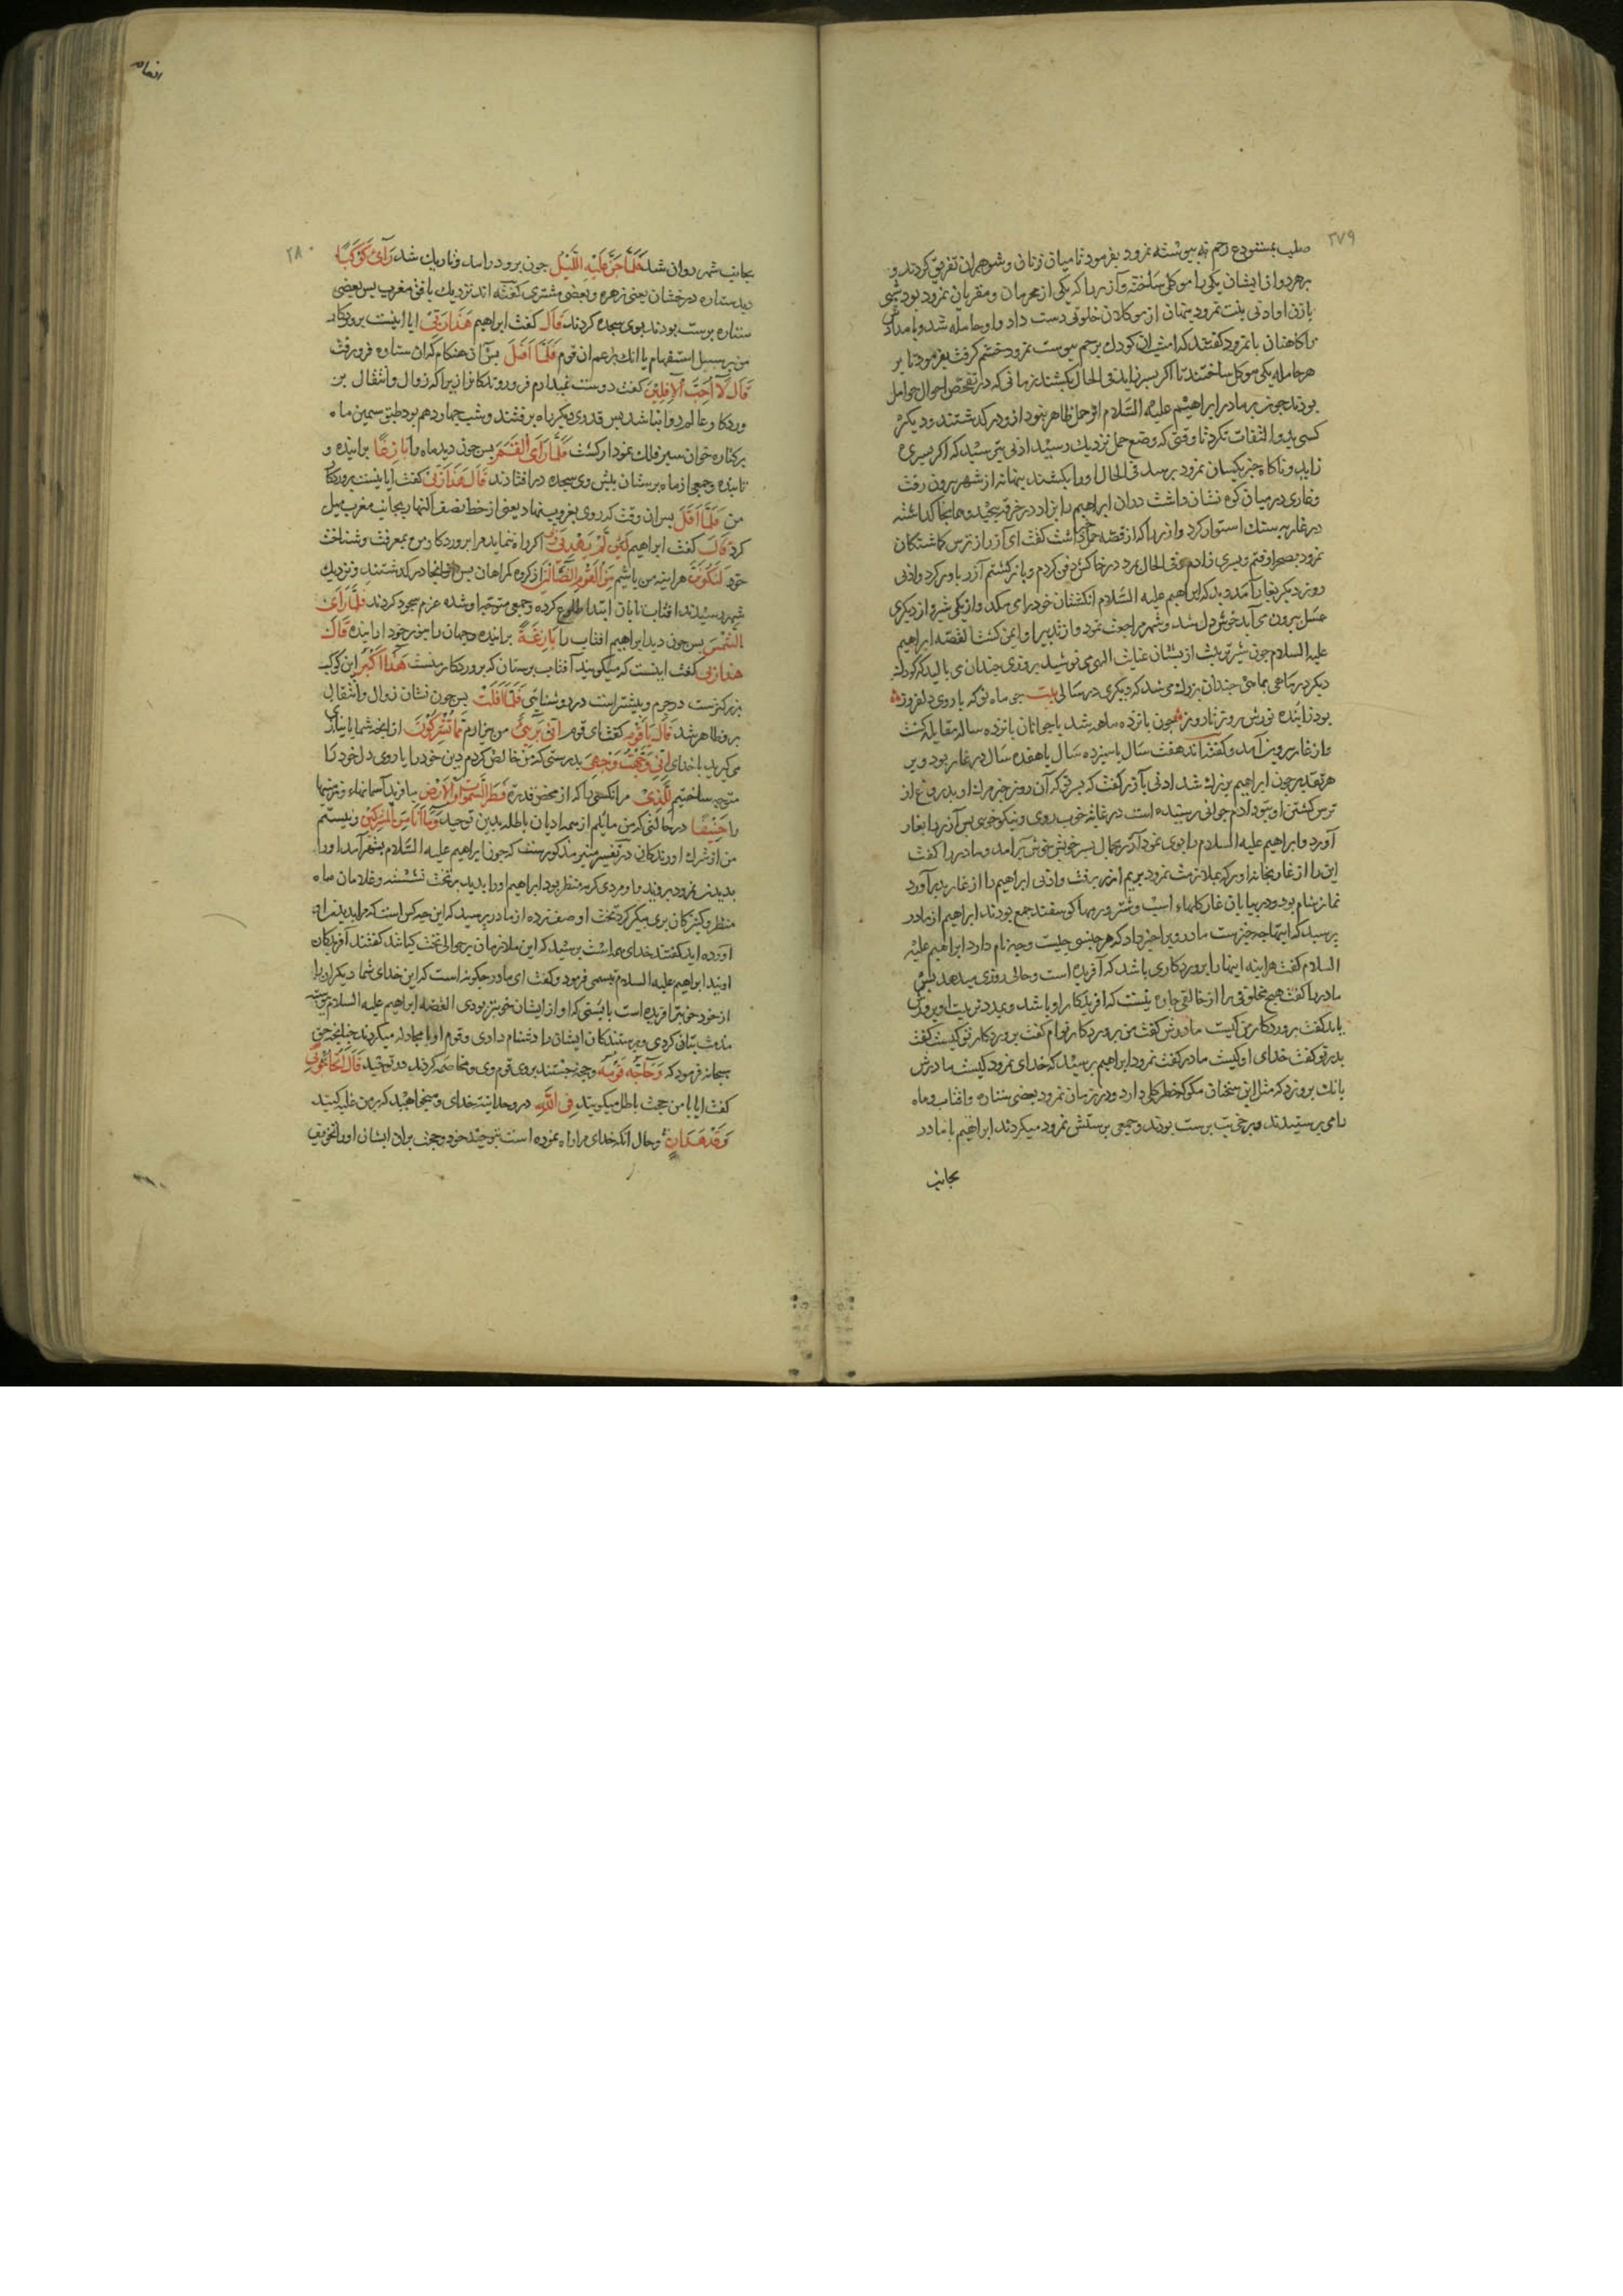 ۲۷۹
صلب بمستودع رحم نه پیوسته نمرود بفرمود تا میان زنان و شوهران تفریق کردند و
بر هر دو از ایشان یکی را موکل ساخته و آزر را که یکی از محرمان و مقربان نمرود بود شبی
با زن او ادنی بنت نمر پنهان از موکلان خلوتی دست داد و او حامله شد و بامداد
کاهنان با نمرود گفتند که امشب آن کودک برحم پیوست نمرود خشم گرفت بفرمود تا بر
هر حامله یکی موکل ساختند تا اگر پسر زاید فی الحال بکشند زمانی که در تفحص احوال حوامل
بودند چون بر مادر ابراهیم علیه السلام اثر حمل ظاهر نبود ازو درگذشتند و دیگر
کسی بدو التفات نکرد تا وقتی که وضع حمل نزدیک رسید ادنی بترسید که اگر پسری
زاید و ناگاه خبر بکسان نمرود برسد فی الحال او را بکشند پنهان از شهر بیرون رفت
و غاری در میان کوه نشان داشت در آن ابراهیم را بزاد در خرقه پیچید و همانجا گذاشته
در غار به سنگ استوار کرد و آزر را که از قصه حمل گفت ای آزر از ترس گماشتگان
نمرود بصحرا رفتم و پسری زادم فی الحال بمرد در خاکش دفن کردم و بازگشتم آزر باور کرد و ادنی
روز دیگر بغار آمد دید که ابراهیم علیه السلام انگشتان خود را می مکد و از یکی شیر و از دیگری
عسل بیرون می آید خوش دل شد و بشهر مراجعت نمود و از تدبیر او ایمن گشت القصه ابراهیم
علیه السلام چون شیر تربیت از پستان عنایت الهی می نوشید بروزی چندان می بالید که کودک
دیگر در ماهی بماهی چندان بزرگ میشد که دیگری در سالی بیت چو ماه نو که با روی دلفروز
بود زاینده نورش روز تا روز چون پانزده ماهه شد با جوانان پانزده ساله مقابله گشت
و از غار بیرون آمد و گفته‌اند هفت سال یا سیزده سال یا هفده سال در غار بود و بر
هر تقدیر چون ابراهیم بزرگ شد ادنی با آزر گفت که پسری که آن روز خبر مرگ او بدروغ از
ترس کشتن او بتو دادم جوانی رسیده است در غایت خوب روی و نیکو خوی پس آزر را بغار
آورد و ابراهیم علیه السلام را بوی نمود آزر بجمال پسر خویش خوش برآمد و مادر را گفت
این را از غار بخانه آور که بملازمت نمرود بریم آزر برفت و ادنی ابراهیم را از غار بدر آورد
نماز شام بود و در بیابان غار گلهاء اسب و شتر و رمها گوسفند جمع بودند ابراهیم از مادر
پرسید که اینها چه چیز است مادر ویرا خبر داد که هر جنسی چیست و چه نام دارد ابراهیم علیه
السلام گفت هر آینه اینها را پروردگاری باشد که آفریده است و حالی روزی میدهد پس
مادر را گفت هیچ مخلوقی را از خالقی چاره نیست که آفریدگار او باشد و بمدد تربیت او پرورش
یابد گفت پروردگار من کیست مادرش گفت من پروردگار توام گفت پروردگار تو کیست گفت
پدر تو گفت خدای او کیست مادر گفت نمرود ابراهیم پرسید که خدای نمرود کیست مادرش
بانگ بر وزد که مثل این سخنان مگو که خطر کلی دارد و در زمان نمرود بعضی ستاره و آفتاب و ماه
را می پرستیدند و برخی بت پرست بودند و جمعی پرستش نمرود میکردند ابراهیم با مادر
بجانب
انعام
۲۸۰
بجانب شهر روان شد فَلَمَّا جَنَّ عَلَيْهِ اللَّيْلُ چون برو درآمد و تاریک شد رَآى كَوْكَبًا
دید ستاره درخشان یعنی زهره و بعضی مشتری گفته اند نزدیک بافق مغرب پس بعضی
ستاره پرست بودند بوی سجده کردند قَالَ گفت ابراهیم هَذَا رَبِّي ایا اینست پروردگار
من بر سبیل استفهام یا آنک بزعم آن قوم فَلَمَّا أَفَلَ پس آن هنگام که آن ستاره فرو رفت
قَالَ لَا أُحِبُّ الْآفِلِينَ گفت دوست نمیدارم فرو روندگانرا زیرا که زوال و انتقال بر
پروردگار عالم روا نباشد پس قدری دیگر راه برفتند و شب چهاردهم بود طبق سیمین ماه
بر کناره خوان سبز فلک نمودار گشت فَلَمَّا رَأَى الْقَمَرَ پس چون دید ماه را بَازِغًا براینده و
تابنده و جمعی از ماه پرستان پیش وی سجده در افتادند قَالَ هَذَا رَبِّي گفت ایا اینست پروردگار
من فَلَمَّا أَفَلَ پس آن وقت که روی بغروب نهاد یعنی از خط نصف النهار بجانب مغرب میل
کرد قَالَ گفت ابراهیم لَئِنْ لَمْ يَهْدِنِي رَبِّي اگر راه ننماید مرا پروردگار من بمعرفت و شناخت
خود لَأَكُونَنَّ هر آینه من باشم مِنَ الْقَوْمِ الضَّالِّينَ از گروه گمراهان پس از آنجا درگذشتند و نزدیک
شهر رسیدند آفتاب تابان ابتدا طلوع کرده و جمعی متوجه او شده عزم سجود کردند فَلَمَّا رَأَى
الشَّمْسَ پس چون دید ابراهیم آفتاب را بَازِغَةً براینده و جهان را بنور خود آراینده قَالَ
هَذَا رَبِّي گفت اینست که میگویند آفتاب پرستان که پروردگار منست هَذَا أَكْبَرُ این کوکب
بزرگترست در جرم و بیشتر است در روشنایی فَلَمَّا أَفَلَتْ پس چون نشان زوال و انتقال
برو ظاهر شد قَالَ يَا قَوْمِ گفت ای قوم إِنِّي بَرِيءٌ من بیزارم مِمَّا تُشْرِكُونَ از آنچه شما انباز
می گیرید با خدای إِنِّي وَجَّهْتُ وَجْهِيَ بدرستی که من خالص کردم دین خود را یا روی دل خود را
متوجه ساختیم لِلَّذِي مر آنکسی را که از محض قدرت فَطَرَ السَّمَوَاتِ وَالْأَرْضَ بیافرید آسمانهاء و زمینها
را حَنِيفًا در حالتی که من مایلم از همه ادیان باطله بدین توحید وَمَا أَنَا مِنَ الْمُشْرِكِينَ و نیستم
من از شرک آورندگان در تفسیر منیر مذکورست که چون ابراهیم علیه السلام بشهر آمد او را
بدیدن نمرود بردند و او مردی کریه منظر بود ابراهیم او را بدید بر تخت نشسته و غلامان ماه
منظر و کنیزکان پری پیکر گرد تخت او صف زده از مادر پرسید که این چه کس است که مرا بدیدن او
آورده اید گفتند خدای همه است پرسید که این ملازمان بر حوالی تخت کیانند گفتند آفریدگان
اویند ابراهیم علیه السلام تبسمی فرمود و گفت ای مادر چگونه است که این خدای شما دیگران را
از خود خوبتر آفریده است بایستی که او از ایشان خوبتر بودی القصه ابراهیم علیه السلام پیوسته
مذمت بتان کردی و پرستندگان ایشان را دشنام دادی و قوم او با او مجادله میکردند چنانچه حق
سبحانه فرمود که وَحَاجَّهُ قَوْمُهُ و حجت جستند بروی قوم وی و مخاصمه کردند در توحید قَالَ أَتُحَاجُّونِّي
گفت ایا با من حجت باطل میگویید فِي اللَّهِ در وحدانیت خدای و میخواهید که بر من غلبه کنید
وَقَدْ هَدَانِ و حال آنکه خدای مرا راه نموده است بتوحید خود و حجت بر آن ایشان او را تخویف